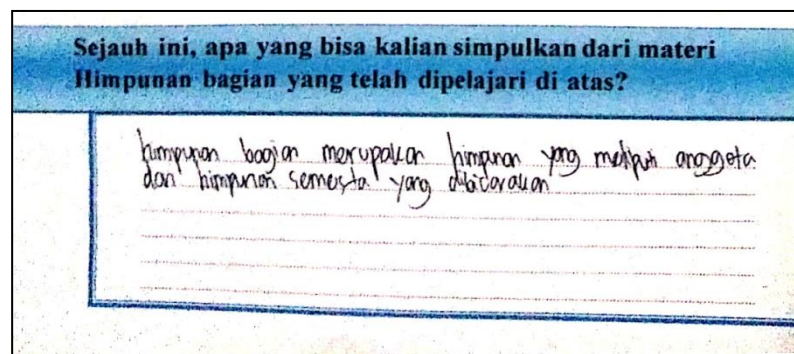 Sejauh ini, apa yang bisa kalian simpulkan dari materi
Himpunan bagian yang telah dipelajari di atas?
himpunan bagian merupakan himpunan yang meliputi anggota
dan himpunan semesta yang dibicarakan